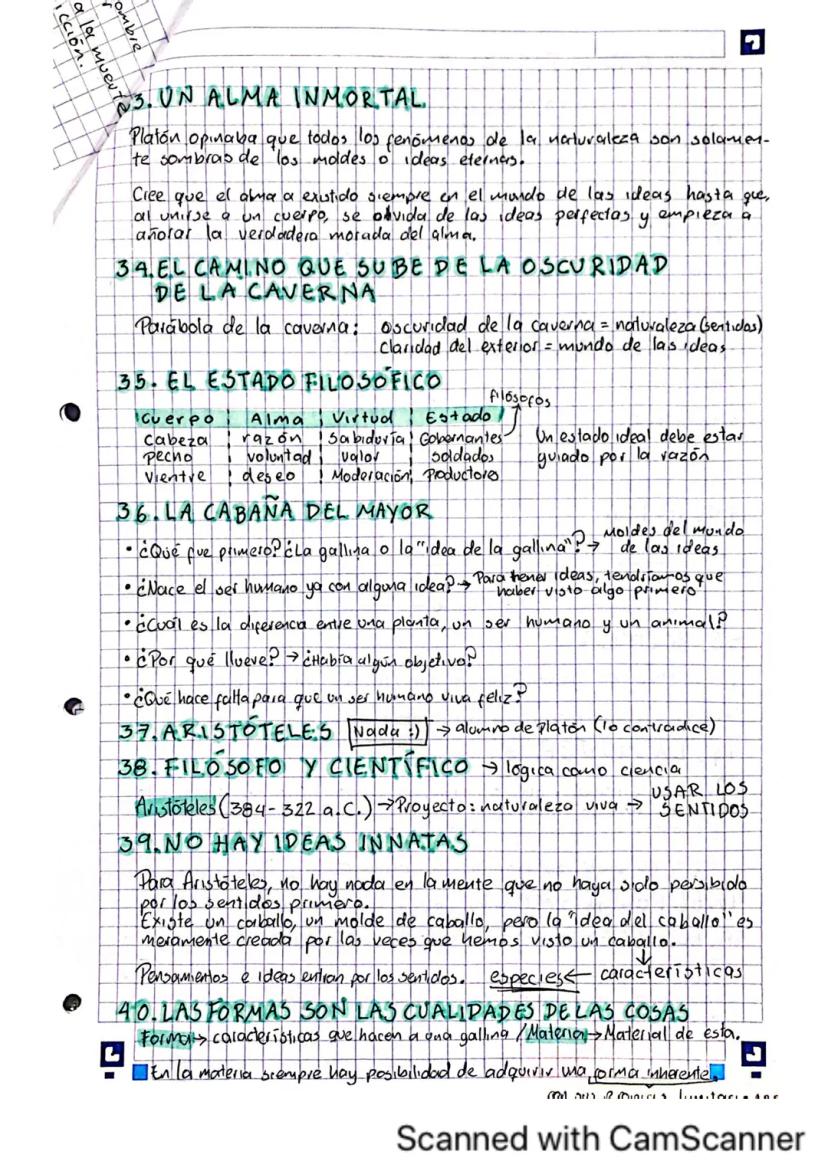 ombre
a la muerte
icción.
3. UN ALMA INMORTAL
Platón opinaba que todos los fenómenos de la naturaleza son solamen-
te sombras de los moldes o ideas eternas.
Cree que el alma a existido siempre en el mundo de las ideas hasta que,
al unirse a un cuerpo, se olvida de las ideas perfectas y empieza a
añorar la verdadera morada del alma.
34. EL CAMINO QUE SUBE DE LA OSCURIDAD
DE LA CAVERNA
Parábola de la caverna: oscuridad de la caverna = naturaleza (sentidos)
claridad del exterior = mundo de las ideas
35. EL ESTADO FILOSÓFICO
filósofos
Cuerpo Alma Virtud Estado
Cabeza razón Sabiduría Gobernantes
Pecho voluntad valor soldados
Vientre deseo Moderación Productores
Un estado ideal debe estar
guiado por la razón
36. LA CABAÑA DEL MAYOR
• ¿Qué fue primero? ¿La gallina o la "idea de la gallina"? → Moldes del mundo
de las ideas
• ¿Nace el ser humano ya con alguna idea? → Para tener ideas, tendríamos que
haber visto algo primero
• ¿Cuál es la diferencia entre una planta, un ser humano y un animal?
• ¿Por qué llueve? → ¿Había algún objetivo?
• ¿Qué hace falta para que un ser humano viva feliz?
37. ARISTÓTELES Nada :) → alumno de Platón (lo contradice)
38. FILÓSOFO Y CIENTÍFICO → lógica como ciencia
Aristóteles (384-322 a.C.) → Proyecto: naturaleza viva → USAR LOS
SENTIDOS
39. NO HAY IDEAS INNATAS
Para Aristóteles, no hay nada en la mente que no haya sido persibido
por los sentidos primero.
Existe un caballo, un molde de caballo, pero la "idea del caballo" es
meramente creada por las veces que hemos visto un caballo.
Pensamientos e ideas entran por los sentidos. especies ← características
40. LAS FORMAS SON LAS CUALIDADES DE LAS COSAS
Forma → características que hacen a una gallina / Materia → Material de esta.
En la materia siempre hay posibilidad de adquirir una forma inherente.
Scanned with CamScanner